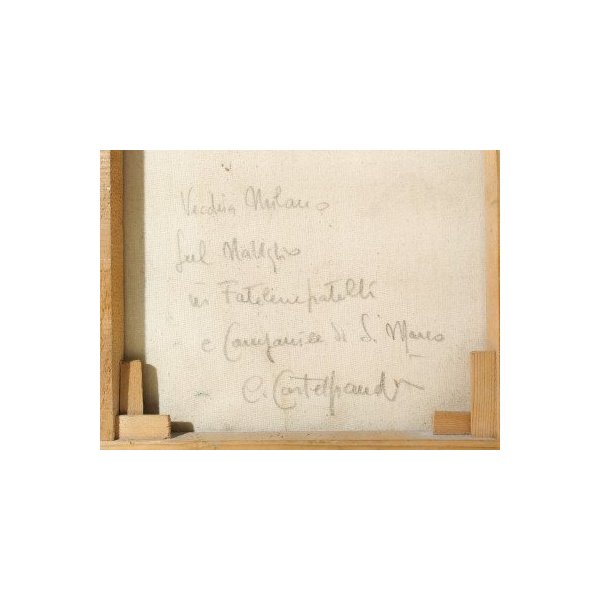 Vecchia Milano
Sul Naviglio
in Fatebenefratelli
e Campanile di S. Marco
C. Castelfranchi